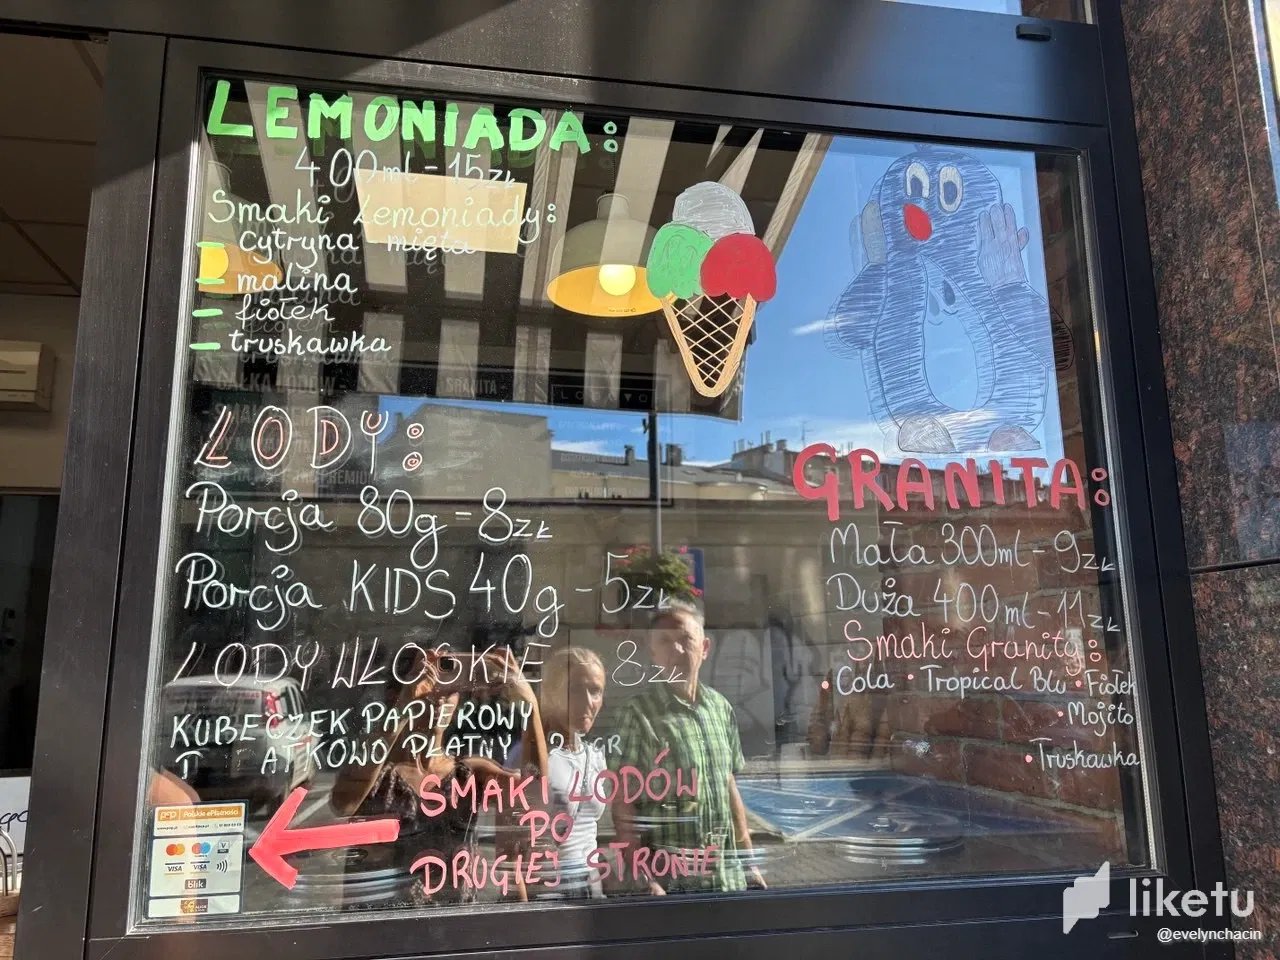 LEMONIADA:
400ml - 15zł
Smaki Lemoniady:
- cytryna - mięta
- malina
- fiołek
- truskawka
LODY:
Porcja 80g - 8zł
Porcja KIDS 40g - 5zł
LODY WŁOSKIE - 8zł
KUBECZEK PAPIEROWY
D ATKOWO PŁATNY 25GR
SMAKI LODÓW
PO
DRUGIEJ STRONIE
GRANITA:
Mała 300ml - 9zł
Duża 400ml - 11zł
Smaki Granity:
• Cola • Tropical Blu • Fiołek
• Mojito
• Truskawka
Polskie ePłatności
VISA VISA
blik
liketu
@evelynchacin